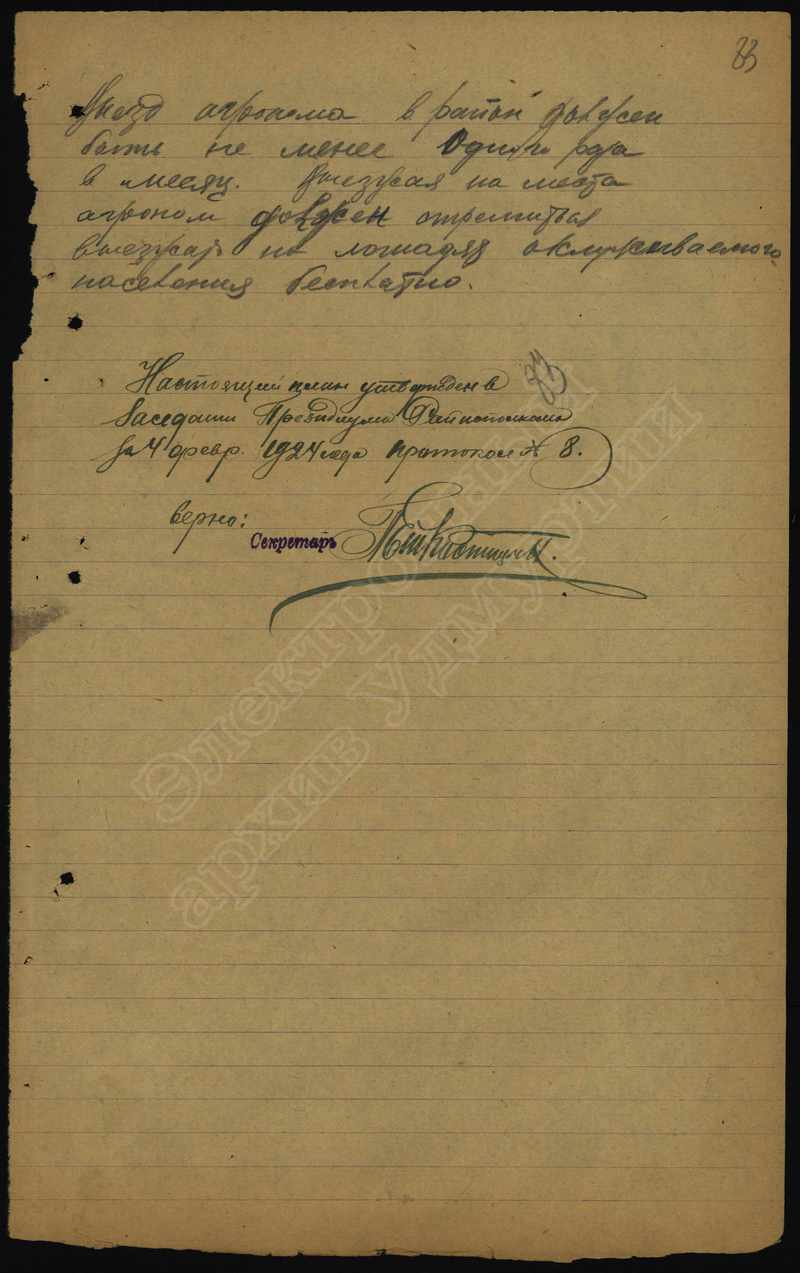 33
Выезд агронома в район должен
быть не менее одного раза
в месяц. Выезжая на места
агроном должен стремиться
выезжать на лошадях обслуживаемого
населения бесплатно.
33
Настоящий план утвержден в
заседании Президиума Райисполкома
за 4 февр. 1924 года протокол № 8.
верно:
Секретарь
Электронный
архив Удмуртии